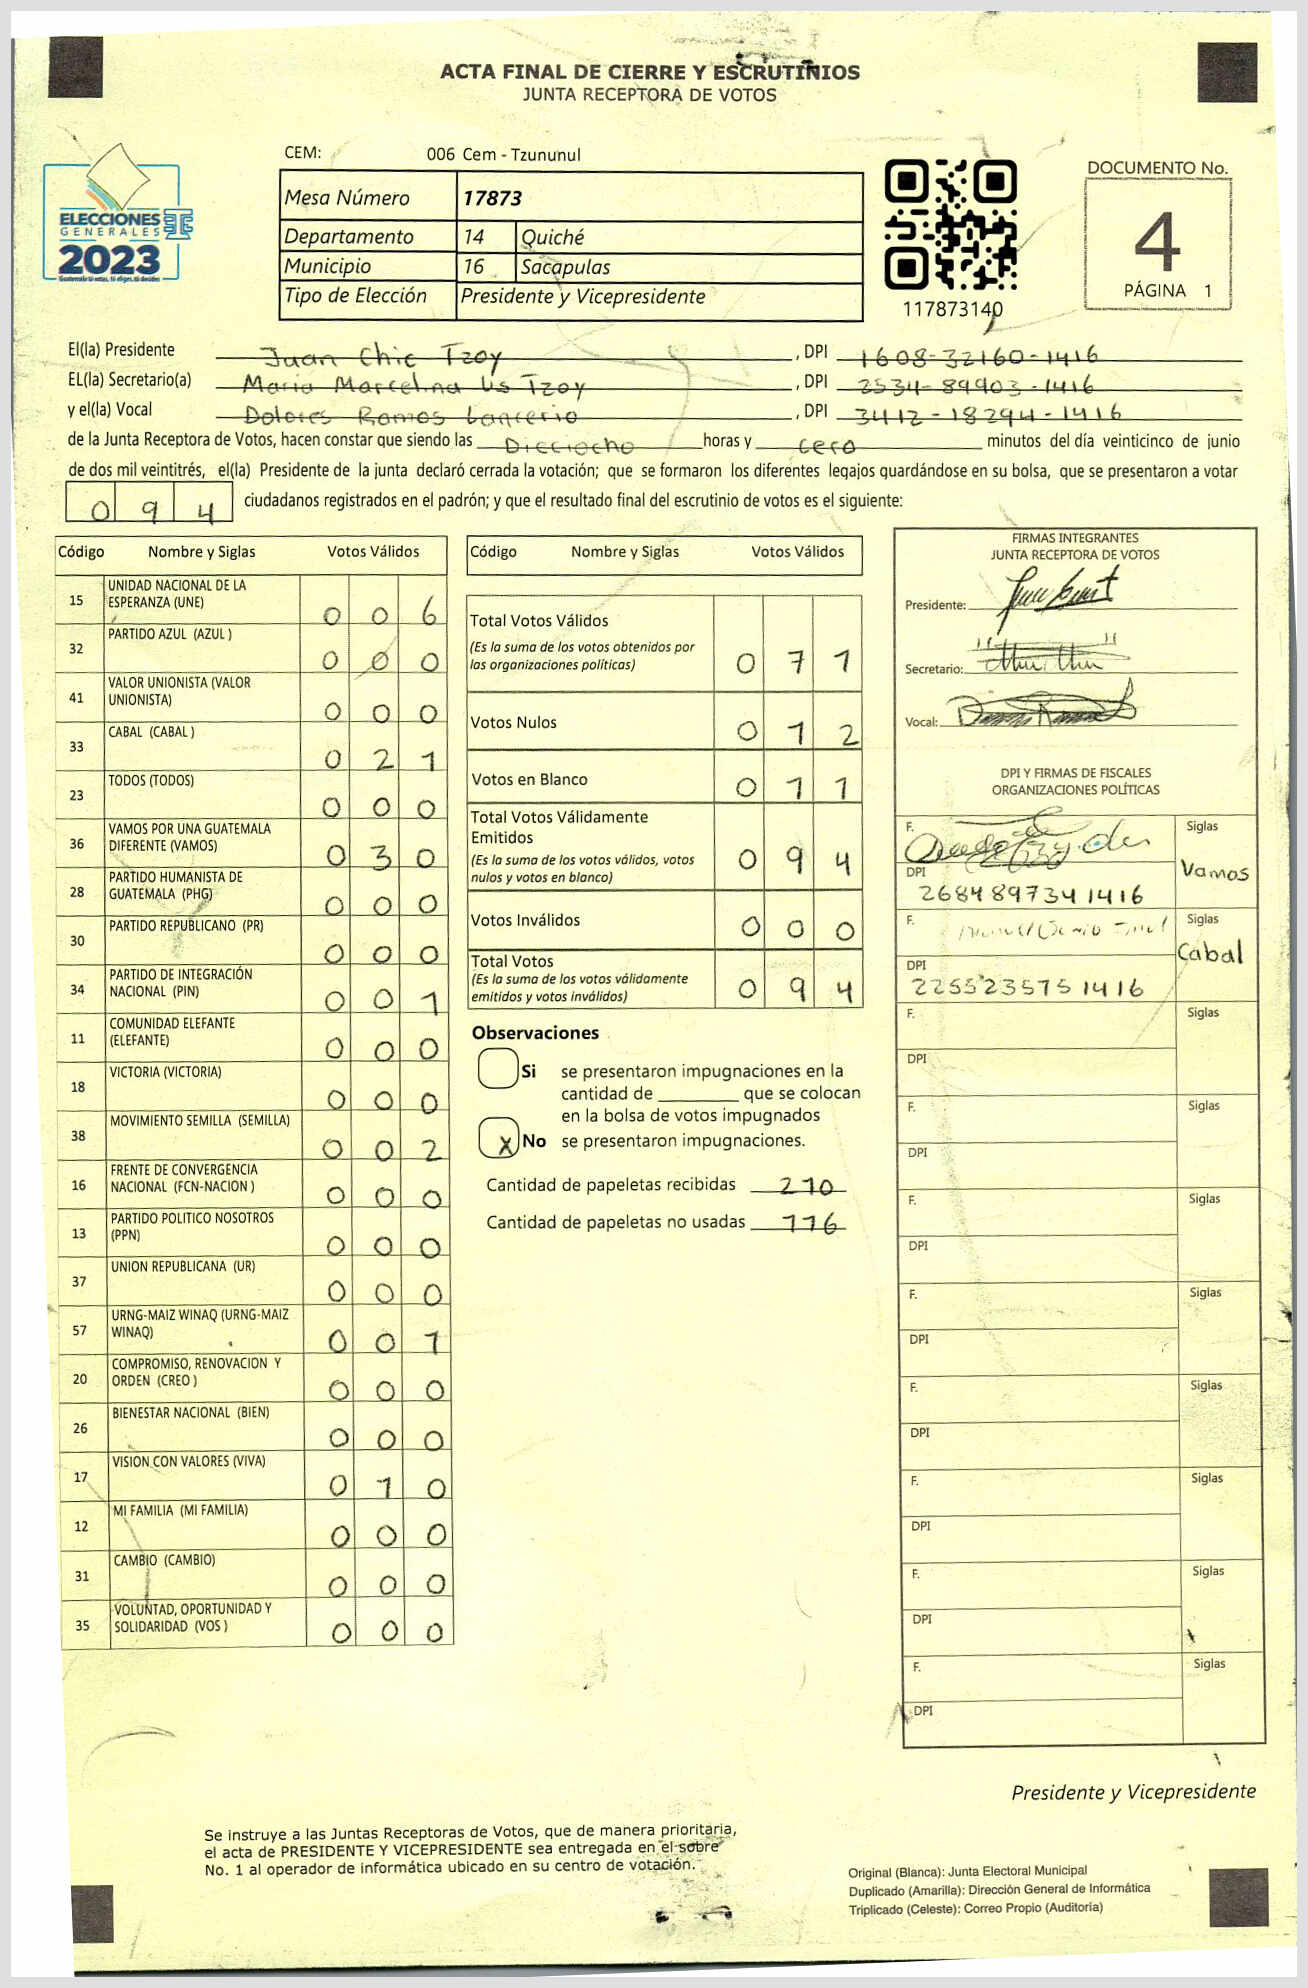 ACTA FINAL DE CIERRE Y ESCRUTINIOS
JUNTA RECEPTORA DE VOTOS
ELECCIONES
GENERALES
2023
CEM: 006 Cem - Tzununul
Mesa Número 17873
Departamento 14 Quiché
Municipio 16 Sacapulas
Tipo de Elección Presidente y Vicepresidente
117873140
DOCUMENTO No.
4
PÁGINA 1
El(la) Presidente Juan Chic Tzoy , DPI 1608-32160-1416
EL(la) Secretario(a) Maria Marcelina Us Tzoy , DPI 2534-89903-1416
y el(la) Vocal Dolores Ramos Lancerio , DPI 3412-18294-1416
de la Junta Receptora de Votos, hacen constar que siendo las Dieciocho horas y cero minutos del día veinticinco de junio
de dos mil veintitrés, el(la) Presidente de la junta declaró cerrada la votación; que se formaron los diferentes legajos guardándose en su bolsa, que se presentaron a votar
094 ciudadanos registrados en el padrón; y que el resultado final del escrutinio de votos es el siguiente:
Código Nombre y Siglas Votos Válidos
15 UNIDAD NACIONAL DE LA
ESPERANZA (UNE) 0 0 6
32 PARTIDO AZUL (AZUL ) 0 0 0
41 VALOR UNIONISTA (VALOR
UNIONISTA) 0 0 0
33 CABAL (CABAL ) 0 2 1
23 TODOS (TODOS) 0 0 0
36 VAMOS POR UNA GUATEMALA
DIFERENTE (VAMOS) 0 3 0
28 PARTIDO HUMANISTA DE
GUATEMALA (PHG) 0 0 0
30 PARTIDO REPUBLICANO (PR) 0 0 0
34 PARTIDO DE INTEGRACIÓN
NACIONAL (PIN) 0 0 1
11 COMUNIDAD ELEFANTE
(ELEFANTE) 0 0 0
18 VICTORIA (VICTORIA) 0 0 0
38 MOVIMIENTO SEMILLA (SEMILLA) 0 0 2
16 FRENTE DE CONVERGENCIA
NACIONAL (FCN-NACION ) 0 0 0
13 PARTIDO POLITICO NOSOTROS
(PPN) 0 0 0
37 UNION REPUBLICANA (UR) 0 0 0
57 URNG-MAIZ WINAQ (URNG-MAIZ
WINAQ) 0 0 1
20 COMPROMISO, RENOVACION Y
ORDEN (CREO ) 0 0 0
26 BIENESTAR NACIONAL (BIEN) 0 0 0
17 VISION CON VALORES (VIVA) 0 1 0
12 MI FAMILIA (MI FAMILIA) 0 0 0
31 CAMBIO (CAMBIO) 0 0 0
35 VOLUNTAD, OPORTUNIDAD Y
SOLIDARIDAD (VOS ) 0 0 0
Código Nombre y Siglas Votos Válidos
Total Votos Válidos
(Es la suma de los votos obtenidos por
las organizaciones políticas) 0 7 1
Votos Nulos 0 1 2
Votos en Blanco 0 1 1
Total Votos Válidamente
Emitidos
(Es la suma de los votos válidos, votos
nulos y votos en blanco) 0 9 4
Votos Inválidos 0 0 0
Total Votos
(Es la suma de los votos válidamente
emitidos y votos inválidos) 0 9 4
Observaciones
Si se presentaron impugnaciones en la
cantidad de ________ que se colocan
en la bolsa de votos impugnados
X No se presentaron impugnaciones.
Cantidad de papeletas recibidas 210
Cantidad de papeletas no usadas 116
FIRMAS INTEGRANTES
JUNTA RECEPTORA DE VOTOS
Presidente:
Secretario:
Vocal:
DPI Y FIRMAS DE FISCALES
ORGANIZACIONES POLÍTICAS
F. Siglas
Vamos
DPI
2684897341416
F. Siglas
Cabal
DPI
2255235751416
F. Siglas
DPI
F. Siglas
DPI
F. Siglas
DPI
F. Siglas
DPI
F. Siglas
DPI
F. Siglas
DPI
F. Siglas
DPI
F. Siglas
DPI
Presidente y Vicepresidente
Se instruye a las Juntas Receptoras de Votos, que de manera prioritaria,
el acta de PRESIDENTE Y VICEPRESIDENTE sea entregada en el sobre
No. 1 al operador de informática ubicado en su centro de votación.
Original (Blanca): Junta Electoral Municipal
Duplicado (Amarilla): Dirección General de Informática
Triplicado (Celeste): Correo Propio (Auditoría)